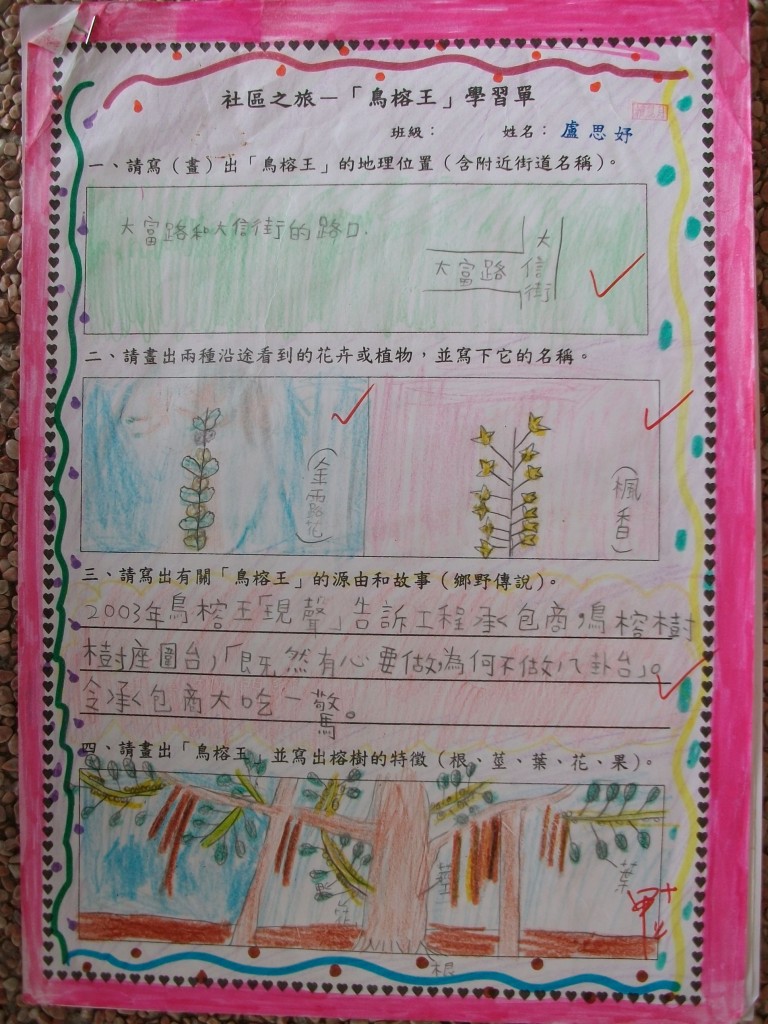 社區之旅－「鳥榕王」學習單
班級： 姓名：盧思妤
一、請寫（畫）出「鳥榕王」的地理位置（含附近街道名稱）。
大富路和大信街的路口.
大富路 大信街
二、請畫出兩種沿途看到的花卉或植物，並寫下它的名稱。
（金露花）
（楓香）
三、請寫出有關「鳥榕王」的源由和故事（鄉野傳說）。
2003年鳥榕王「現聲」告訴工程承包商，鳥榕樹
樹座圓台，「既然有心要做，為何不做八卦台」。
令承包商大吃一驚。
四、請畫出「鳥榕王」並寫出榕樹的特徵（根、莖、葉、花、果）。
花 莖 葉
甲+
根